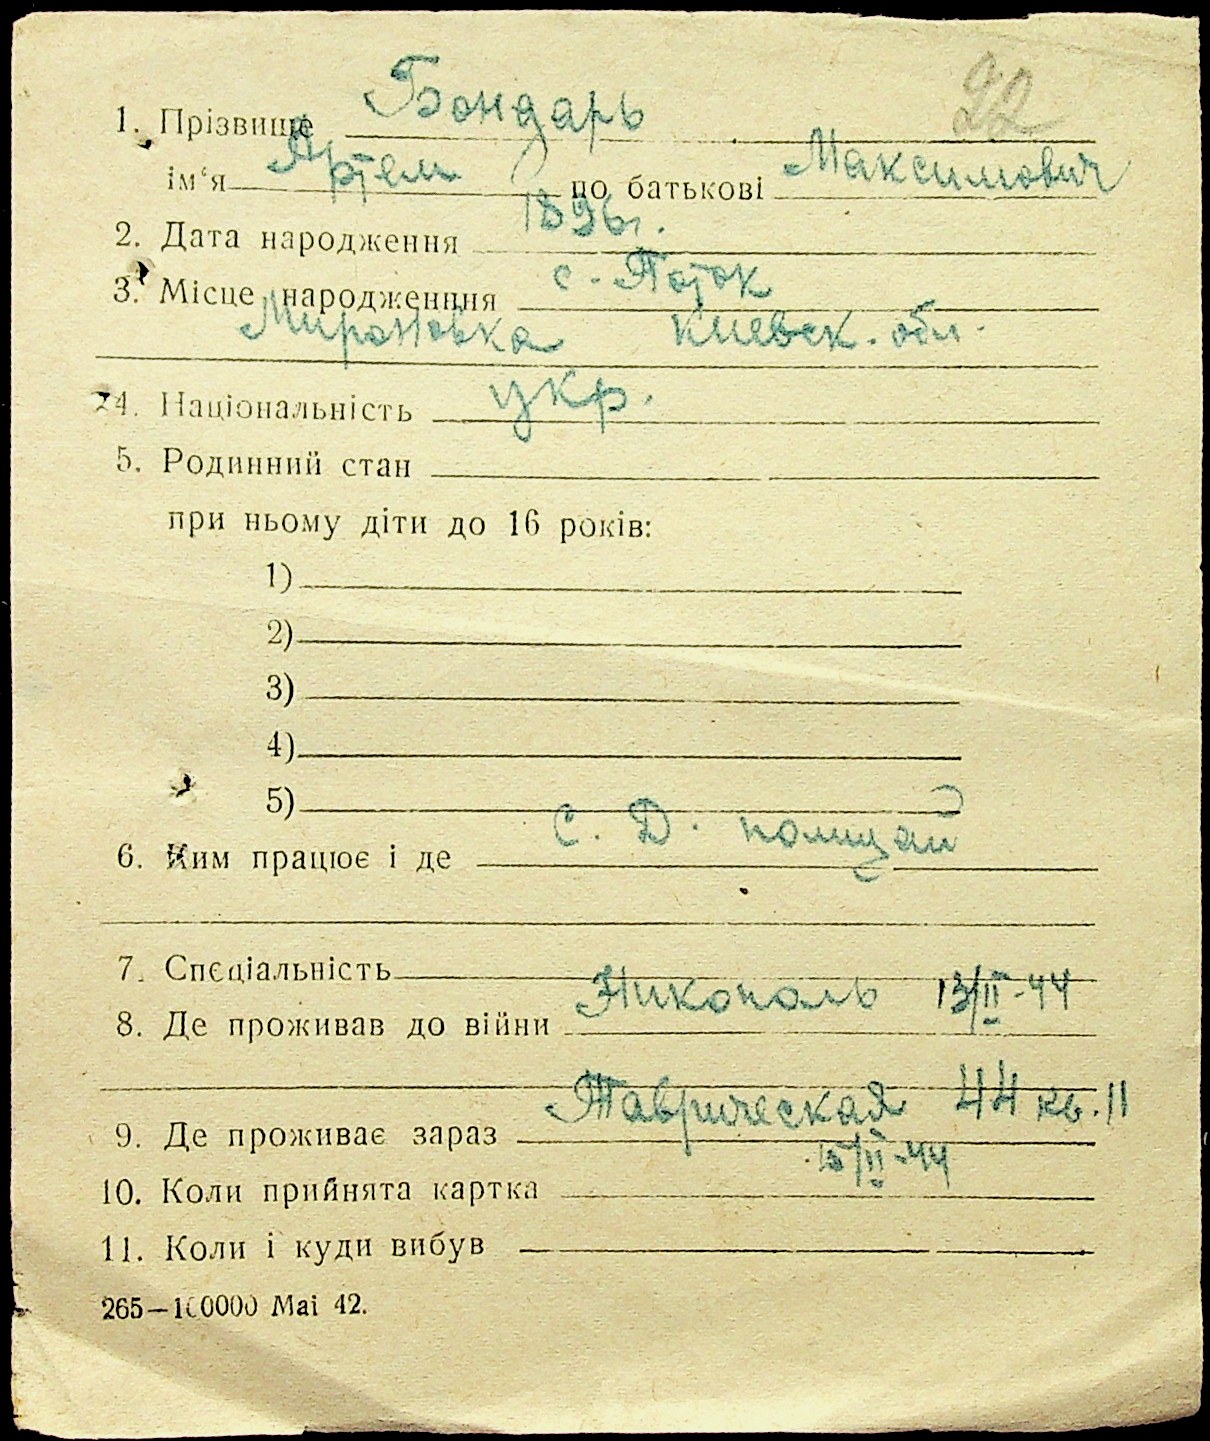 22
1. Прізвище Бондарь
ім‘я Артем по батькові Максимович
2. Дата народження 1896г.
3. Місце народженння с. Поток
Мироновка киевск. обл.
4. Національність укр.
5. Родинний стан
при ньому діти до 16 років:
1)
2)
3)
4)
5)
6. Ким працює і де С. Д. полицай
7. Спеціальність
8. Де проживав до війни Никополь 13/II-44
9. Де проживає зараз Таврическая 44 кв. 11
10. Коли прийнята картка 15/II-44
11. Коли і куди вибув
265—100000 Mai 42.